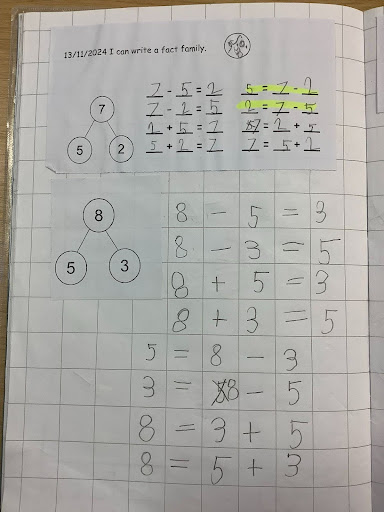 13/11/2024 I can write a fact family.
7
5 2
7 - 5 = 2
7 - 2 = 5
2 + 5 = 7
5 + 2 = 7
5 = 7 - 2
2 = 7 - 5
7 = 2 + 5
7 = 5 + 2
8
5 3
8 - 5 = 3
8 - 3 = 5
8 + 5 = 3
8 + 3 = 5
5 = 8 - 3
3 = 8 - 5
8 = 3 + 5
8 = 5 + 3